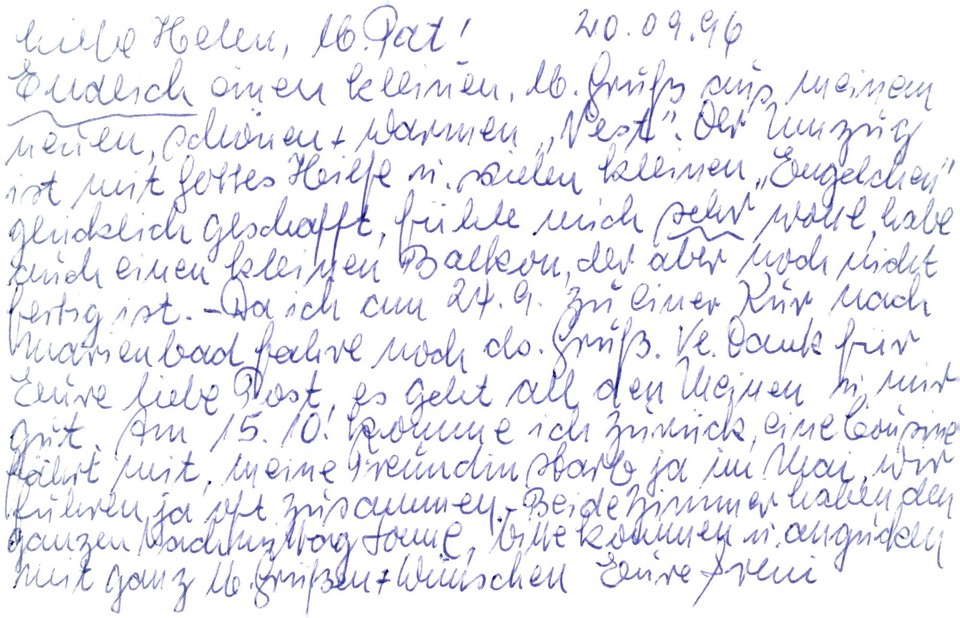 Liebe Helen, lb. Pat! 20.09.96
Endlich einen kleinen, lb. Gruß aus meinem
neuen, schönen + warmen „Nest“. Der Umzug
ist mit Gottes Hilfe u. vielen kleinen „Engelchen“
glücklich geschafft, fühle mich sehr wohl, habe
auch einen kleinen Balkon, der aber noch nicht
fertig ist. – Da ich am 27.9. zu einer Kur nach
Marienbad fahre noch ds. Gruß. Ve. Dank für
Eure liebe Post, es geht all den Meinen u. mir
gut. Am 15.10. komme ich zurück, eine Cousine
fährt mit, meine Freundin starb ja im Mai, wir
fuhren ja oft zusammen. – Beide Zimmer haben den
ganzen Nachmittag Sonne, bitte kommen u. angucken
mit ganz lb. Grüßen + Wünschen Eure